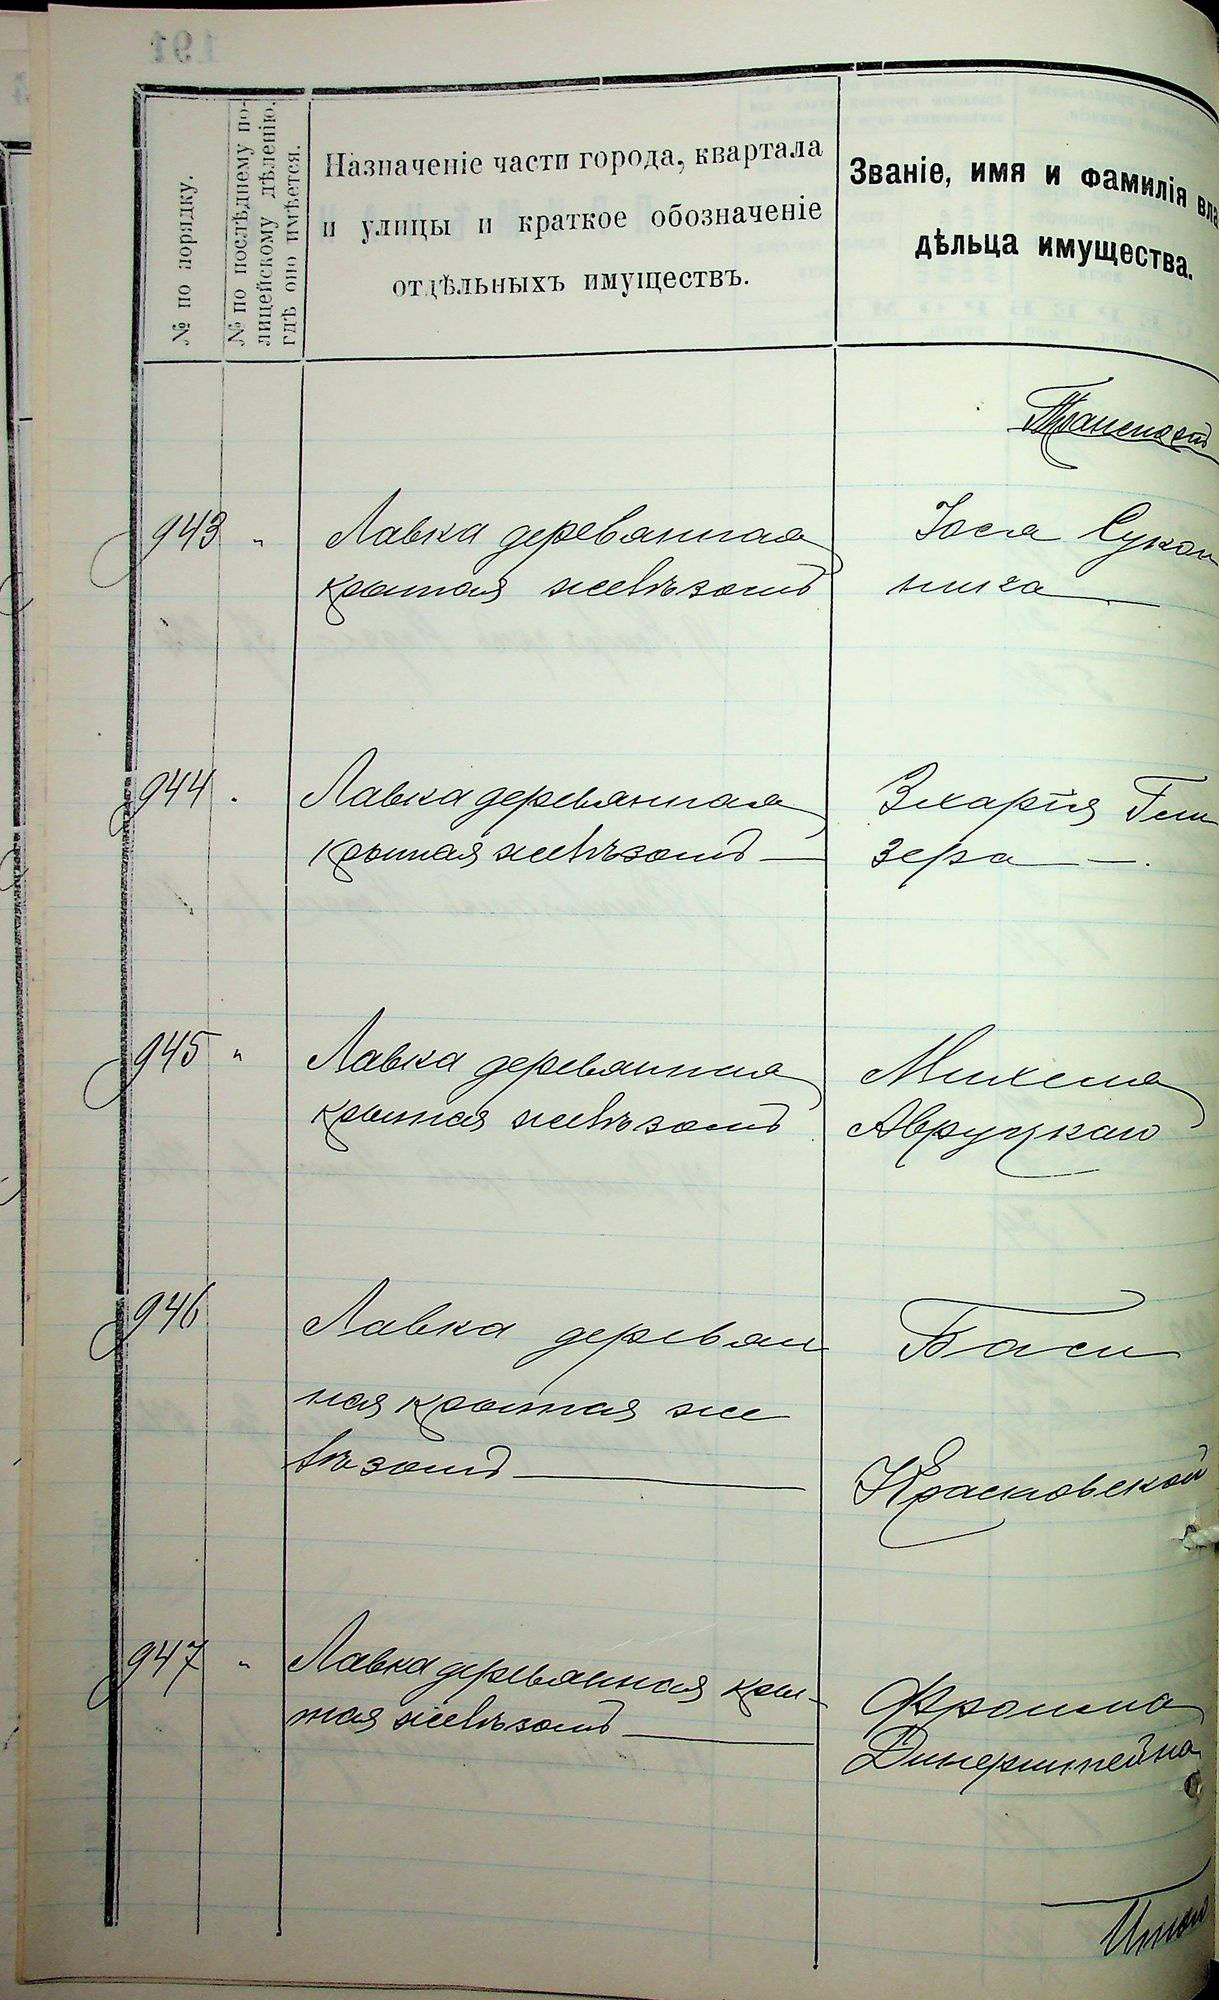 191
№ по порядку.
№ по послѣднему по-
лицейскому дѣленію,
гдѣ оно имѣется.
Назначеніе части города, квартала
и улицы и краткое обозначеніе
отдѣльныхъ имуществъ.
Званіе, имя и фамилія вла
дѣльца имущества.
Транспортъ
943 "
Лавка деревянная
крытая желѣзомъ
Іося Сукон
ника
944 "
Лавка деревянная
крытая желѣзомъ —
Зхарія
зера —
945 "
Лавка деревянная
крытая желѣзомъ
Михеля
Авруцкаю
946
Лавка деревян
ная крытая же
лѣзомъ —
Баси
Красновской
947 "
Лавка деревянная кры-
тая желѣзомъ —
Фроима
Динерштейна
Итого